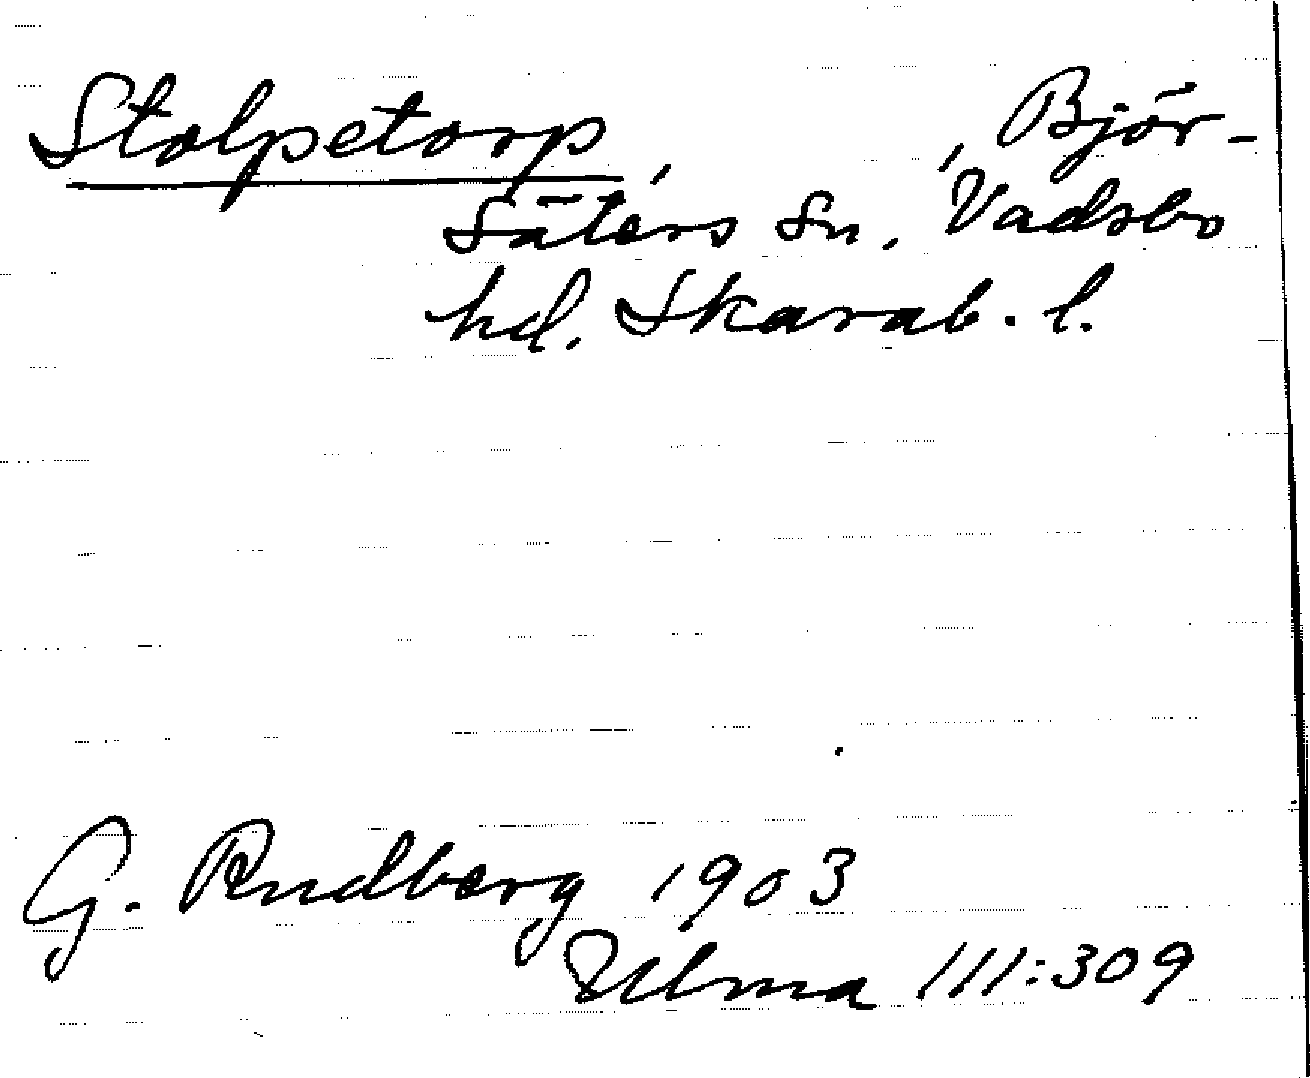 Stolpetorp, , Björ-
säters sn, Vadsbo
hd. Skarab. l.
G. Rudberg 1903
Ulma 111:309